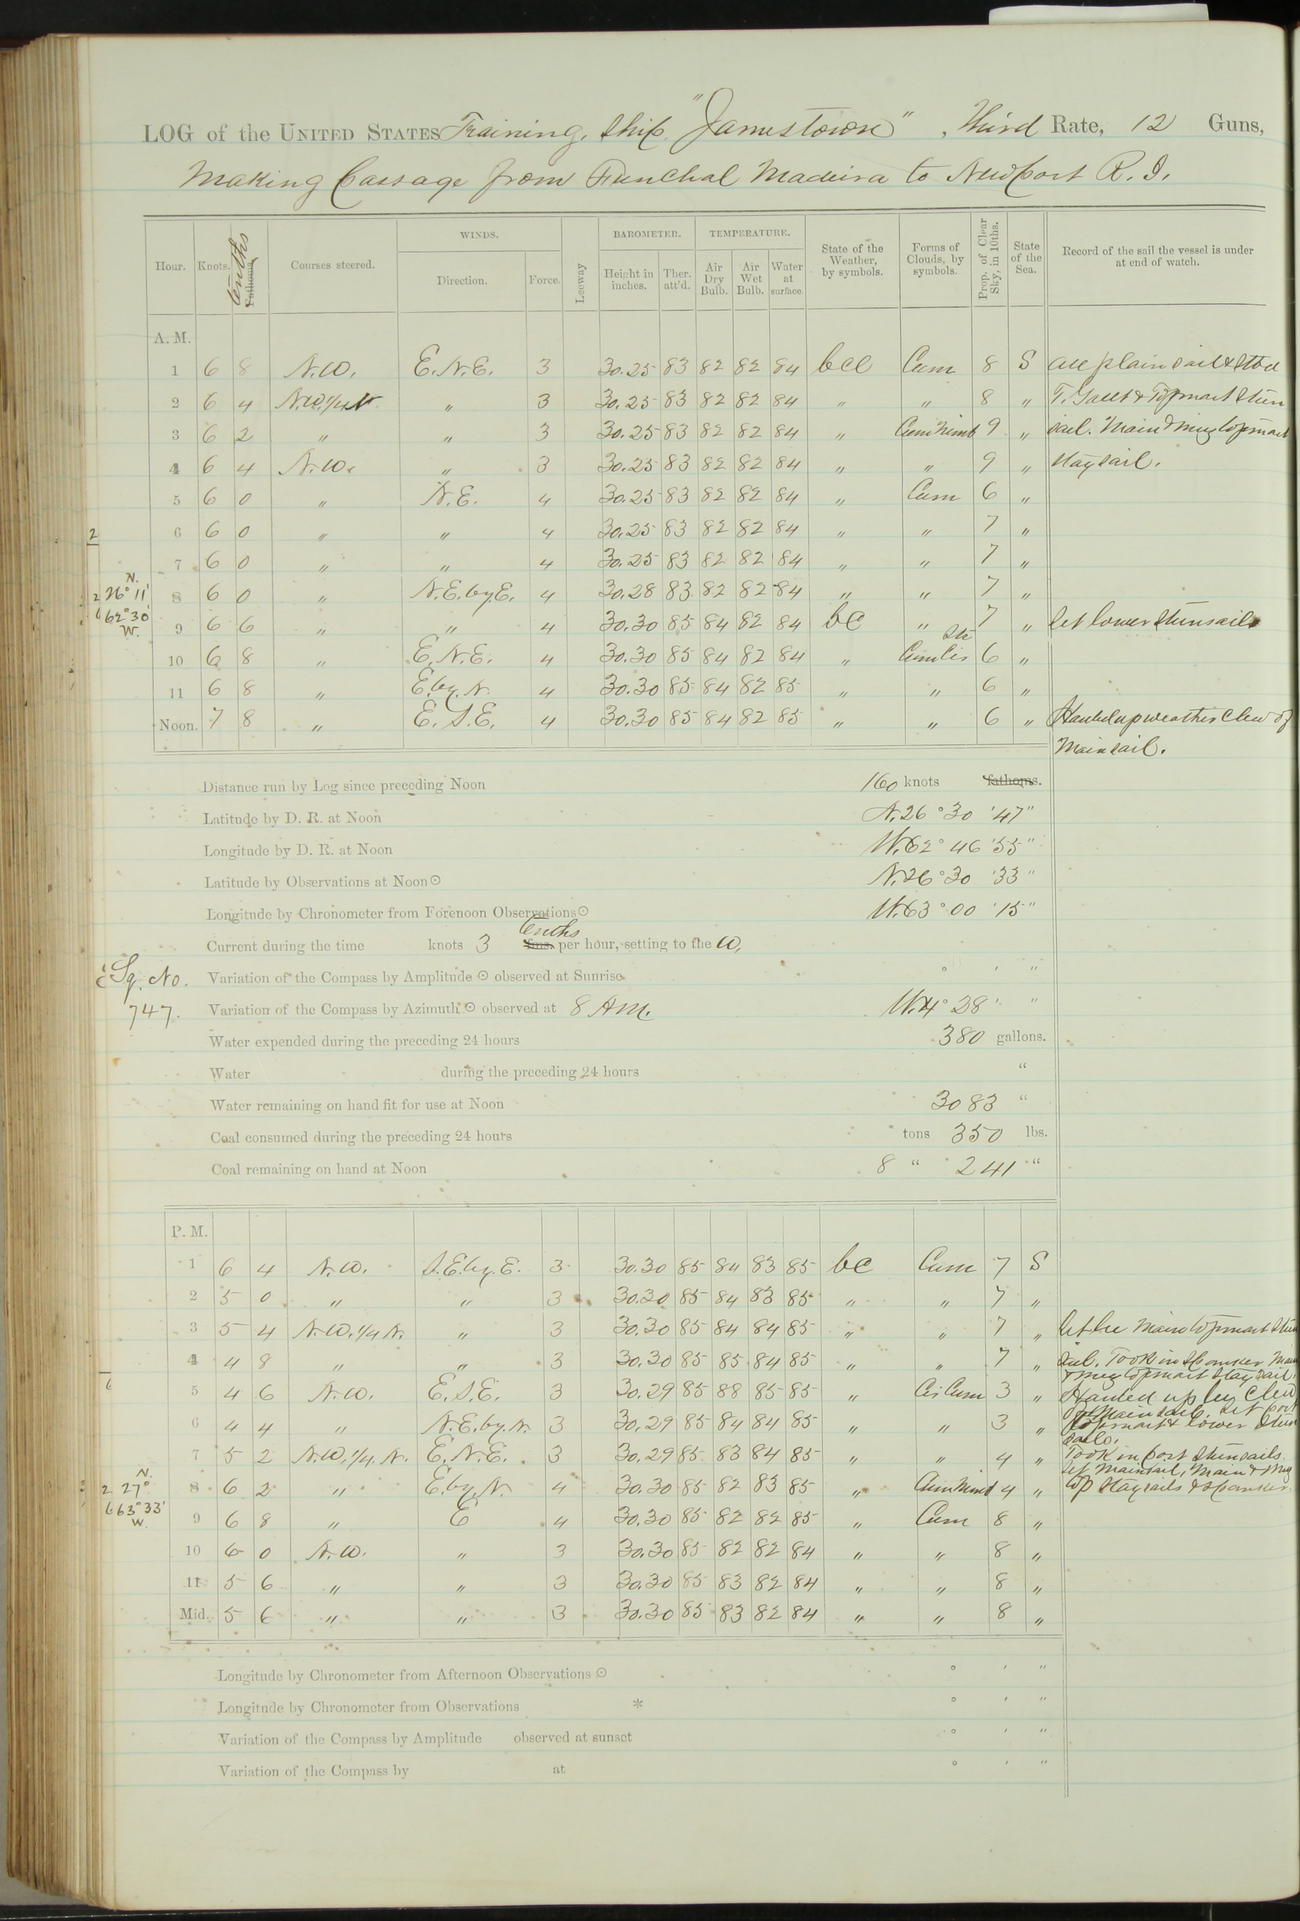 LOG of the UNITED STATES Training Ship "Jamestown", Third Rate, 12 Guns,
Making Passage from Funchal Madeira to Newport R. I.
Hour. Knots. tenths Fathoms. Courses steered. WINDS. Direction. Force. Leeway BAROMETER. Height in inches. Ther. att'd. TEMPERATURE. Air Dry Bulb. Air Wet Bulb. Water at surface. State of the Weather, by symbols. Forms of Clouds, by symbols. Prop. of Clear Sky, in 10ths. State of the Sea. Record of the sail the vessel is under at end of watch.
A. M.
1 6 8 N.W. E.N.E. 3 30.25 83 82 82 84 bcc Cum 8 S All plain sail & Stbd
2 6 4 N.W.1/4N " 3 30.25 83 82 82 84 " " 8 " T. Gallt & Topmast Stun
3 6 2 " " 3 30.25 83 82 82 84 " Cum Nimb 9 " sail. Main & Miz topmast
4 6 4 N.W. " 3 30.25 83 82 82 84 " " 9 " staysail.
5 6 0 " N.E. 4 30.25 83 82 82 84 " Cum 6 "
2
6 6 0 " " 4 30.25 83 82 82 84 " " 7 "
7 6 0 " " 4 30.25 83 82 82 84 " " 7 "
N. 26° 11'
8 6 0 " N.E. by E. 4 30.28 83 82 82 84 " " 7 "
62° 30' W.
9 6 6 " " 4 30.30 85 84 82 84 bc " 7 " Set lower Stunsail
10 6 8 " E.N.E. 4 30.30 85 84 82 84 " Cum Cir Str 6 "
11 6 8 " E. by N. 4 30.30 85 84 82 85 " " 6 "
Noon. 7 8 " E.S.E. 4 30.30 85 84 82 85 " " 6 " Hauled up weather Clew of
Mainsail.
Distance run by Log since preceding Noon 160 knots fathoms.
Latitude by D. R. at Noon N. 26° 30' 47"
Longitude by D. R. at Noon W. 62° 46' 55"
Latitude by Observations at Noon ⊙ N. 26° 30' 33"
Longitude by Chronometer from Forenoon Observations ⊙ W. 63° 00' 15"
Current during the time knots 3 tenths fms. per hour, setting to the W.
Sq. No. 747.
Variation of the Compass by Amplitude ⊙ observed at Sunrise ° ' "
Variation of the Compass by Azimuth ⊙ observed at 8 AM. W. 4° 28' "
Water expended during the preceding 24 hours 380 gallons.
Water during the preceding 24 hours "
Water remaining on hand fit for use at Noon 3083 "
Coal consumed during the preceding 24 hours tons 350 lbs.
Coal remaining on hand at Noon 8 " 241 "
P. M.
1 6 4 N.W. S.E. by E. 3 30.30 85 84 83 85 bc Cum 7 S
2 5 0 " " 3 30.30 85 84 83 85 " " 7 "
3 5 4 N.W.1/4 N. " 3 30.30 85 84 84 85 " " 7 " Set lee Main topmast Stun
4 4 8 " " 3 30.30 85 85 84 85 " " 7 " sail. Took in Spanker Main
& Miz topmast Stay sail.
6
5 4 6 N.W. E.S.E. 3 30.29 85 88 85 85 " Cir Cum 3 " Hauled up lee Clew
of Mainsail. Set port
6 4 4 " N.E. by N. 3 30.29 85 84 84 85 " " 3 " topmast & lower Stun
sails.
7 5 2 N.W.1/4 N. E.N.E. 3 30.29 85 83 84 85 " " 4 " Took in port Stunsails.
Set Mainsail, Main & Miz
N. 27°
8 6 2 " E. by N. 4 30.30 85 82 83 85 " Cum Nimb 4 " top Staysails & Spanker.
63° 33' W.
9 6 8 " E 4 30.30 85 82 82 85 " Cum 8 "
10 6 0 N.W. " 3 30.30 85 82 82 84 " " 8 "
11 5 6 " " 3 30.30 85 83 82 84 " " 8 "
Mid. 5 6 " " 3 30.30 85 83 82 84 " " 8 "
Longitude by Chronometer from Afternoon Observations ⊙ ° ' "
Longitude by Chronometer from Observations * ° ' "
Variation of the Compass by Amplitude observed at sunset ° ' "
Variation of the Compass by at ° ' "